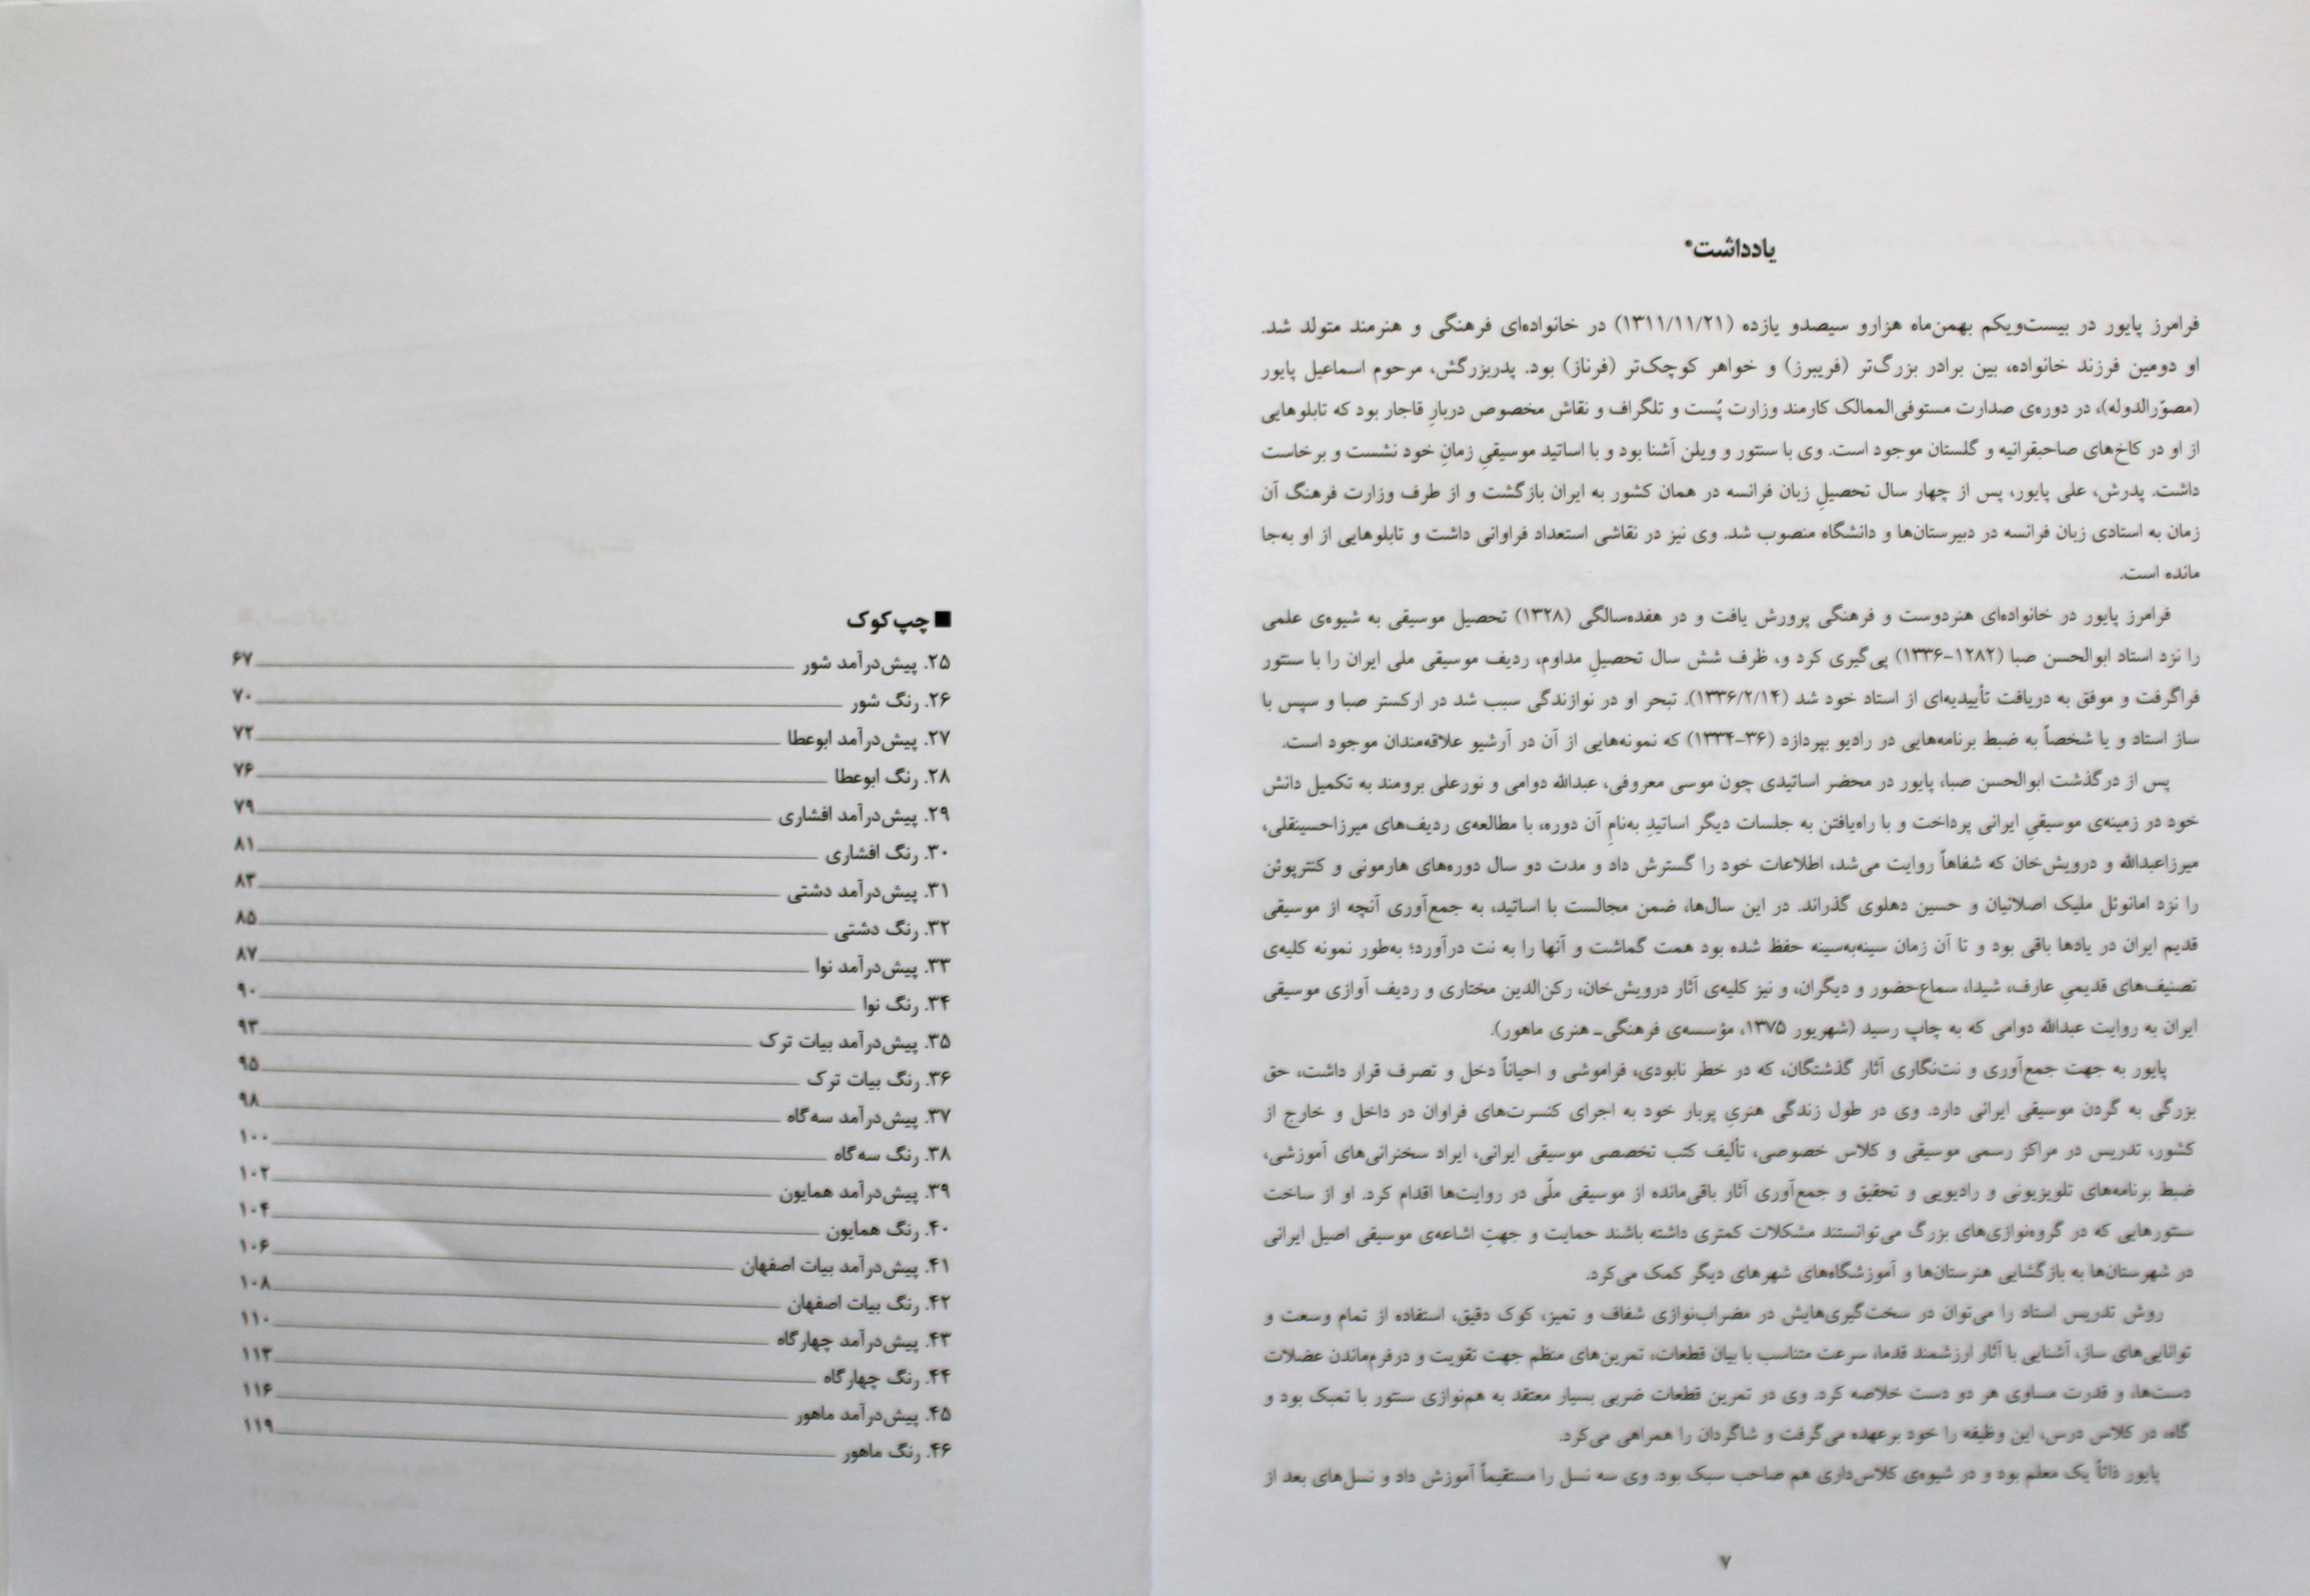 یادداشت*
فرامرز پایور در بیست‌ویکم بهمن‌ماه هزارو سیصدو یازده (۱۳۱۱/۱۱/۲۱) در خانواده‌ای فرهنگی و هنرمند متولد شد.
او دومین فرزند خانواده، بین برادر بزرگ‌تر (فریبرز) و خواهر کوچک‌تر (فرناز) بود. پدربزرگش، مرحوم اسماعیل پایور
(مصوّرالدوله)، در دوره‌ی صدارت مستوفی‌الممالک کارمند وزارت پُست و تلگراف و نقاش مخصوص دربارِ قاجار بود که تابلوهایی
از او در کاخ‌های صاحبقرانیه و گلستان موجود است. وی با سنتور و ویلن آشنا بود و با اساتید موسیقیِ زمانِ خود نشست و برخاست
داشت. پدرش، علی پایور، پس از چهار سال تحصیلِ زبان فرانسه در همان کشور به ایران بازگشت و از طرف وزارت فرهنگ آن
زمان به استادی زبان فرانسه در دبیرستان‌ها و دانشگاه منصوب شد. وی نیز در نقاشی استعداد فراوانی داشت و تابلوهایی از او به‌جا
مانده است.
فرامرز پایور در خانواده‌ای هنردوست و فرهنگی پرورش یافت و در هفده‌سالگی (۱۳۲۸) تحصیل موسیقی به شیوه‌ی علمی
را نزد استاد ابوالحسن صبا (۱۲۸۲-۱۳۳۶) پی‌گیری کرد و، ظرف شش سال تحصیلِ مداوم، ردیف موسیقی ملی ایران را با سنتور
فراگرفت و موفق به دریافت تأییدیه‌ای از استاد خود شد (۱۳۳۶/۲/۱۴). تبحر او در نوازندگی سبب شد در ارکستر صبا و سپس با
ساز استاد و یا شخصاً به ضبط برنامه‌هایی در رادیو بپردازد (۳۶-۱۳۳۴) که نمونه‌هایی از آن در آرشیو علاقه‌مندان موجود است.
پس از درگذشت ابوالحسن صبا، پایور در محضر اساتیدی چون موسی معروفی، عبدالله دوامی و نورعلی برومند به تکمیل دانش
خود در زمینه‌ی موسیقیِ ایرانی پرداخت و با راه‌یافتن به جلسات دیگر اساتیدِ به‌نامِ آن دوره، با مطالعه‌ی ردیف‌های میرزاحسینقلی،
میرزاعبدالله و درویش‌خان که شفاهاً روایت می‌شد، اطلاعات خود را گسترش داد و مدت دو سال دوره‌های هارمونی و کنترپوئن
را نزد امانوئل ملیک اصلانیان و حسین دهلوی گذراند. در این سال‌ها، ضمن مجالست با اساتید، به جمع‌آوری آنچه از موسیقی
قدیم ایران در یادها باقی بود و تا آن زمان سینه‌به‌سینه حفظ شده بود همت گماشت و آنها را به نت درآورد؛ به‌طور نمونه کلیه‌ی
تصنیف‌های قدیمیِ عارف، شیدا، سماع‌حضور و دیگران، و نیز کلیه‌ی آثار درویش‌خان، رکن‌الدین مختاری و ردیف آوازی موسیقی
ایران به روایت عبدالله دوامی که به چاپ رسید (شهریور ۱۳۷۵، مؤسسه‌ی فرهنگی‌ـ هنری ماهور).
پایور به جهت جمع‌آوری و نت‌نگاری آثار گذشتگان، که در خطر نابودی، فراموشی و احیاناً دخل و تصرف قرار داشت، حق
بزرگی به گردن موسیقی ایرانی دارد. وی در طول زندگی هنریِ پربار خود به اجرای کنسرت‌های فراوان در داخل و خارج از
کشور، تدریس در مراکز رسمی موسیقی و کلاس خصوصی، تألیف کتب تخصصی موسیقی ایرانی، ایراد سخنرانی‌های آموزشی،
ضبط برنامه‌های تلویزیونی و رادیویی و تحقیق و جمع‌آوری آثار باقی‌مانده از موسیقی ملّی در روایت‌ها اقدام کرد. او از ساخت
سنتورهایی که در گروه‌نوازی‌های بزرگ می‌توانستند مشکلات کمتری داشته باشند حمایت و جهتِ اشاعه‌ی موسیقی اصیل ایرانی
در شهرستان‌ها به بازگشایی هنرستان‌ها و آموزشگاه‌های شهرهای دیگر کمک می‌کرد.
روش تدریس استاد را می‌توان در سخت‌گیری‌هایش در مضراب‌نوازی شفاف و تمیز، کوک دقیق، استفاده از تمام وسعت و
توانایی‌های ساز، آشنایی با آثار ارزشمند قدما، سرعت متناسب با بیان قطعات، تمرین‌های منظم جهت تقویت و درفرم‌ماندن عضلات
دست‌ها، و قدرت مساوی هر دو دست خلاصه کرد. وی در تمرین قطعات ضربی بسیار معتقد به هم‌نوازی سنتور با تمبک بود و
گاه، در کلاس درس، این وظیفه را خود برعهده می‌گرفت و شاگردان را همراهی می‌کرد.
پایور ذاتاً یک معلم بود و در شیوه‌ی کلاس‌داری هم صاحب سبک بود. وی سه نسل را مستقیماً آموزش داد و نسل‌های بعد از
۷
■ چپ‌کوک
۲۵. پیش‌درآمد شور ۶۷
۲۶. رنگ شور ۷۰
۲۷. پیش‌درآمد ابوعطا ۷۲
۲۸. رنگ ابوعطا ۷۶
۲۹. پیش‌درآمد افشاری ۷۹
۳۰. رنگ افشاری ۸۱
۳۱. پیش‌درآمد دشتی ۸۳
۳۲. رنگ دشتی ۸۵
۳۳. پیش‌درآمد نوا ۸۷
۳۴. رنگ نوا ۹۰
۳۵. پیش‌درآمد بیات ترک ۹۳
۳۶. رنگ بیات ترک ۹۵
۳۷. پیش‌درآمد سه‌گاه ۹۸
۳۸. رنگ سه‌گاه ۱۰۰
۳۹. پیش‌درآمد همایون ۱۰۲
۴۰. رنگ همایون ۱۰۴
۴۱. پیش‌درآمد بیات اصفهان ۱۰۶
۴۲. رنگ بیات اصفهان ۱۰۸
۴۳. پیش‌درآمد چهارگاه ۱۱۰
۴۴. رنگ چهارگاه ۱۱۳
۴۵. پیش‌درآمد ماهور ۱۱۶
۴۶. رنگ ماهور ۱۱۹